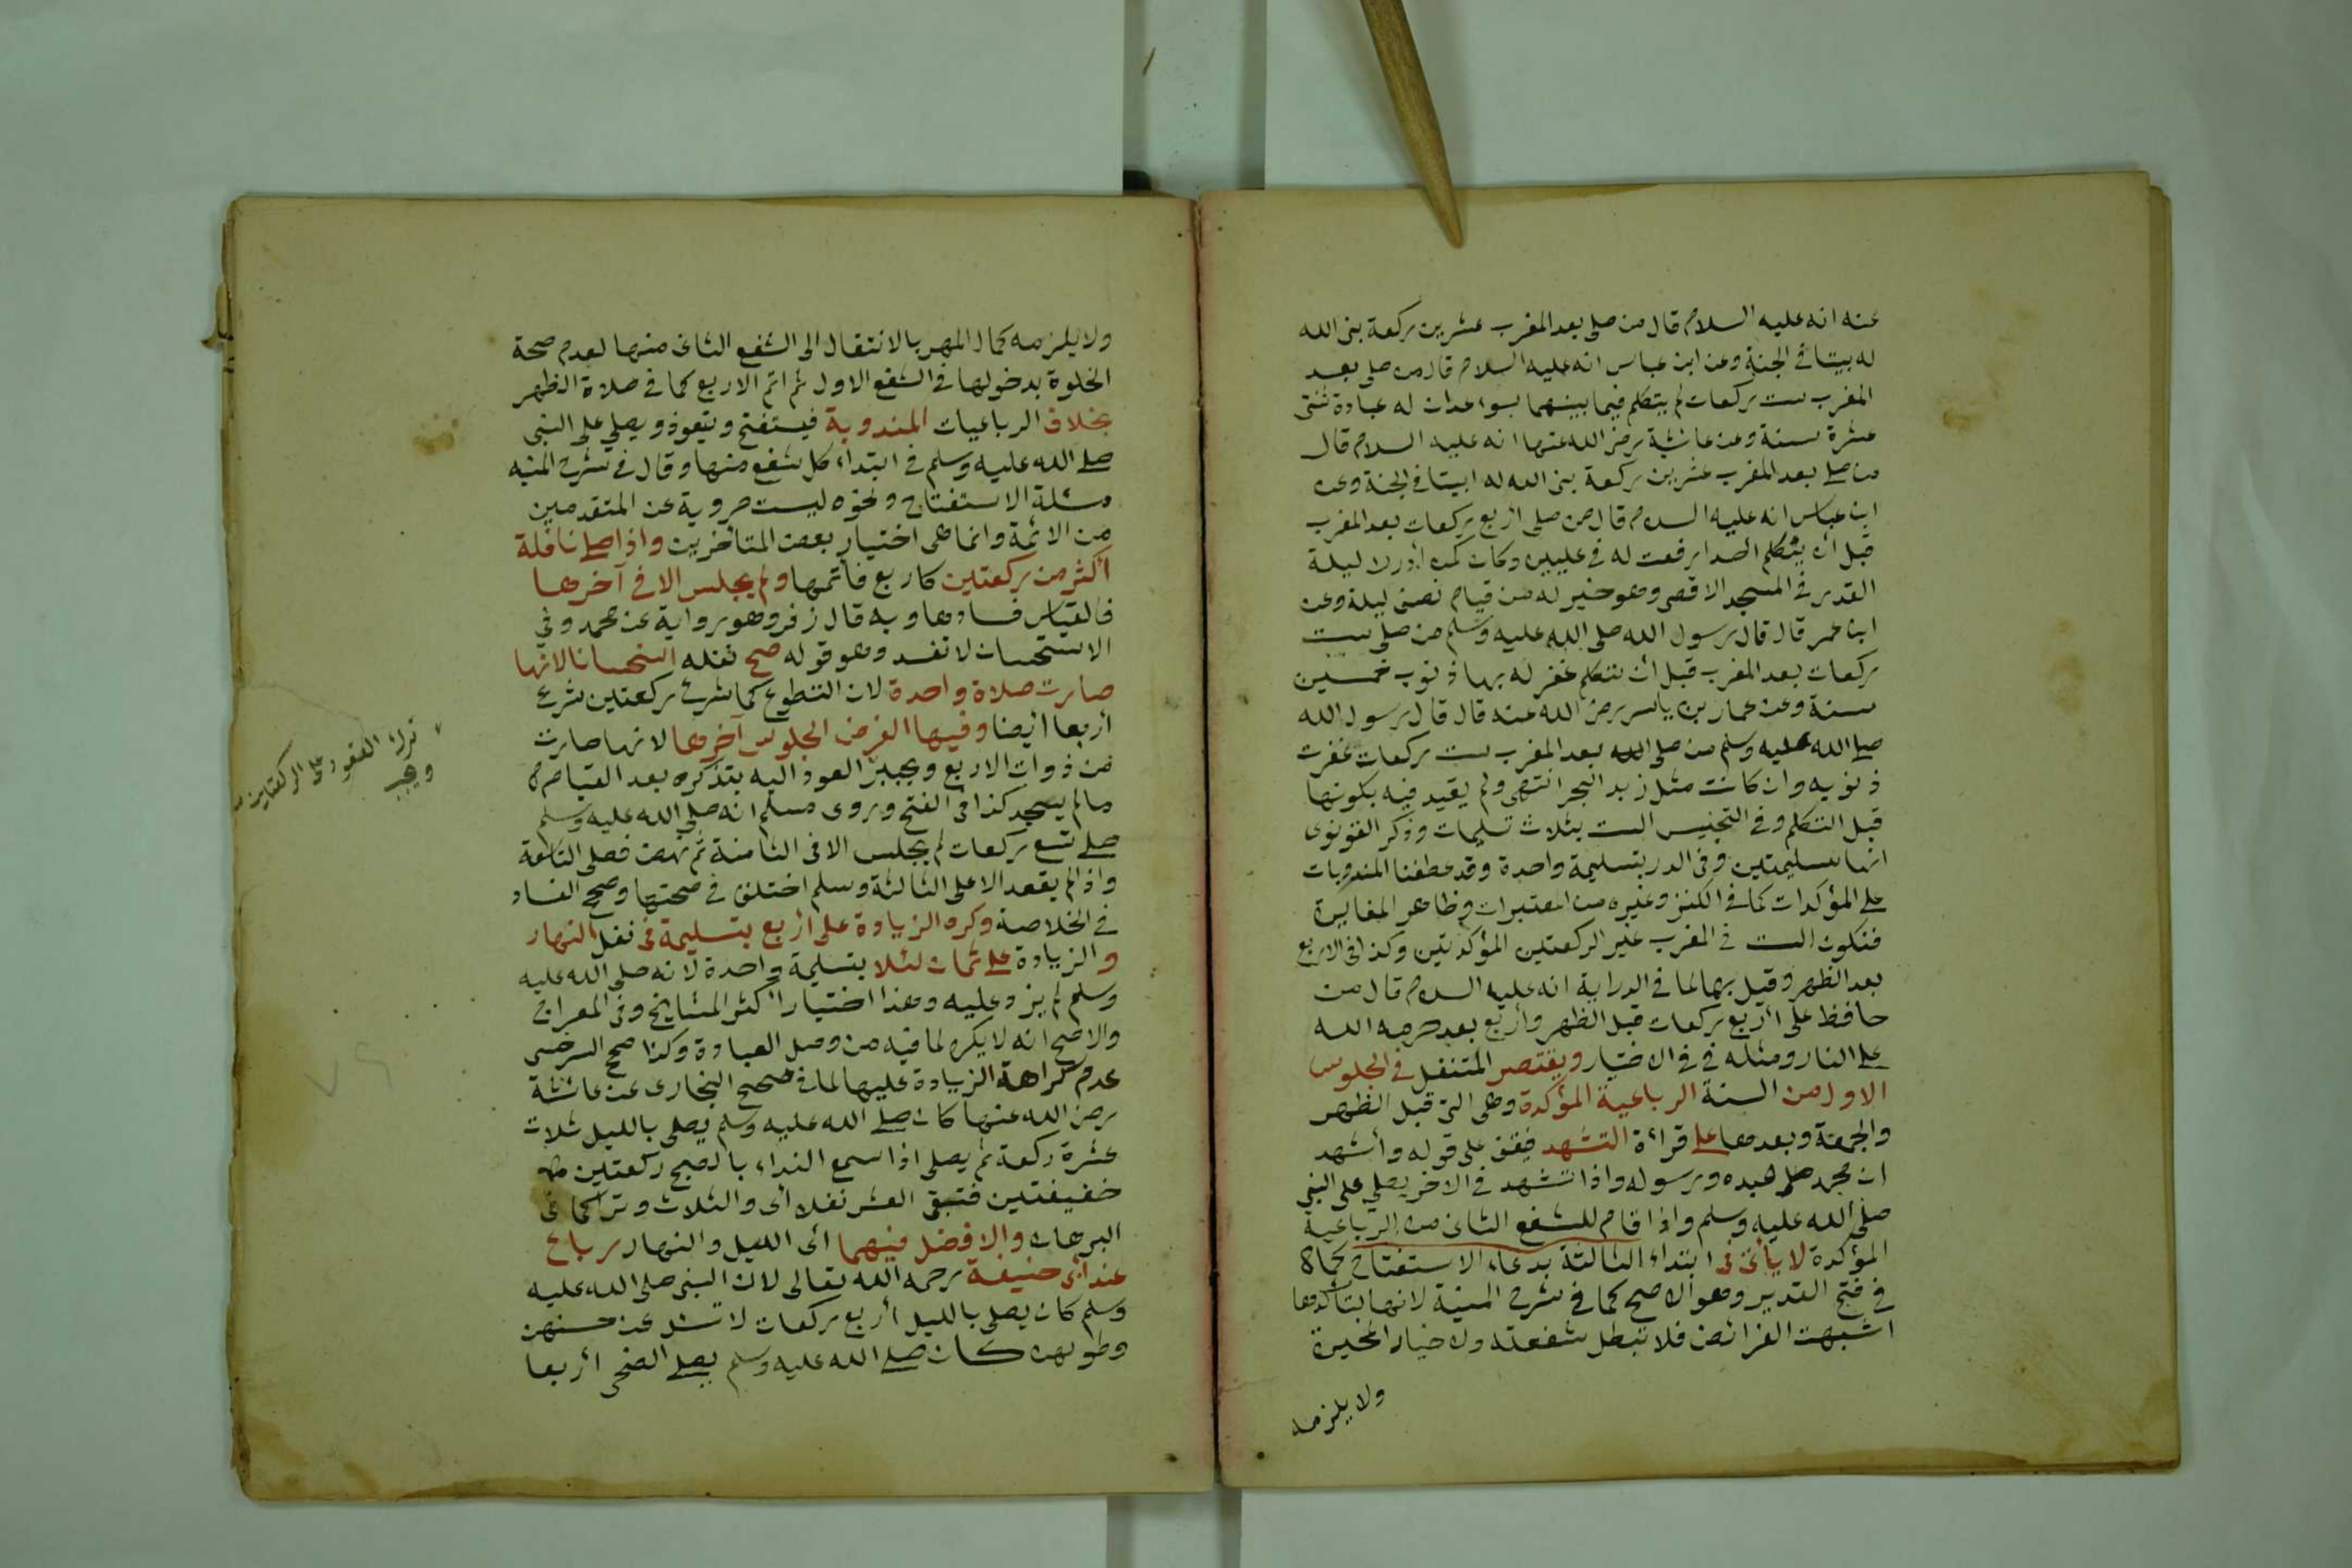 عنه انه عليه السلام قال من صلى بعد المغرب عشرين ركعة بنى الله
له بيتا في الجنة وعن ابن عباس انه عليه السلام قال من صلى بعد
المغرب ست ركعات لم يتكلم فيما بينهما بسوء عدلن له عبادة ثنتى
عشرة سنة وعن عائشة رضى الله عنها انه عليه السلام قال
من صلى بعد المغرب عشرين ركعة بنى الله له ابيتا في الجنة وعن
ابن عباس انه عليه السلام قال من صلى أربع ركعات بعد المغرب
قبل أن يتكلم احدا رفعت له في عليين وكان كمن أدرك ليلة
القدر في المسجد الاقصى وهو خير له من قيام نصف ليلة وعن
ابن عمر قال قال رسول الله صلى الله عليه وسلم من صلى ست
ركعات بعد المغرب قبل أن يتكلم غفر له بها ذنوب خمسين
سنة وعن عمار بن ياسر رضى الله عنه قال قال رسول الله
صلى الله عليه وسلم من صلى بعد المغرب ست ركعات غفرت
ذنوبه وان كانت مثل زبد البحر انتهى ولم يقيد فيه بكونها
قبل التكلم وفي التجنيس الست بثلاث تسليمات وذكر القونوى
انها بتسليمتين وفى الدرر بتسليمة واحدة وقد عطفنا المندوبات
على المؤكدات كما في الكنز وغيره من المعتبرات وظاهر المغايرة
فتكون الست في المغرب غير الركعتين المؤكدتين وكذا في الاربع
بعد الظهر وقيل بهما لما في الدراية انه عليه السلام قال من
حافظ على أربع ركعات قبل الظهر وأربع بعد حرمه الله
على النار ومثله في في الاختيار ويقتصر المتنفل في الجلوس
الاول من السنة الرباعية المؤكدة وهى التى قبل الظهر
والجمعة وبعدها على قراءة التشهد فيقف على قوله وأشهد
ان محمد عبده ورسوله واذا تشهد في الاخر يصلي على النبي
صلى الله عليه وسلم واذا قام للشفع الثانى من الرباعية
المؤكدة لا يأتى فى ابتداء الثالثة بدعاء الاستفتاح كما
في فتح القدير وهو الاصح كما في شرح المنية لانها لتأكدها
اشبهت الفرائض فلا تبطل شفعته ولا خيار المخيرة
ولا يلزمه
ولا يلزمه كمال المهر بالانتقال الى الشفع الثانى منها لعدم صحة
الخلوة بدخولها في الشفع الاول ثم اتم الاربع كما في صلاة الظهر
بخلاف الرباعيات المندوبة فيستفتح ويتعوذ ويصلي على النبى
صلى الله عليه وسلم في ابتداء كل شفع منها وقال في شرح المنيه
مسئلة الاستفتاح ونحوه ليست مروية عن المتقدمين
من الائمة وانما هى اختيار بعض المتأخرين واذا صلى نافلة
أكثر من ركعتين كاربع فأتمها ولم يجلس الا في آخرها
فالقياس فسادها وبه قال زفر وهو رواية عن محمد وفي
الاستحسان لا تفسد وهو قوله صح نفله استحسانا لانها
صارت صلاة واحدة لان التطوع كما شرع ركعتين شرع
أربعا أيضا وفيها الفرض الجلوس آخرها لانها صارت
من ذوات الاربع ويجبر العود اليه بتذكره بعد القيام
ما لم يسجد كذا في الفتح وروى مسلم انه صلى الله عليه وسلم
صلى تسع ركعات لم يجلس الا في الثامنة ثم نهض فصلى التاسعة
واذا لم يقعد الا على الثالثة وسلم اختلف في صحتها وصحح الفساد
في الخلاصة وكره الزيادة على أربع بتسليمة في نفل النهار
والزيادة على ثمان ليلا بتسليمة واحدة لانه صلى الله عليه
وسلم لم يزد عليه وهذا اختيار أكثر المشايخ وفى المعراج
والاصح انه لا يكره لما فيه من وصل العبادة وكذا صحح السرخسى
عدم كراهة الزيادة عليها لما في صحيح البخارى عن عائشة
رضى الله عنها كان صلى الله عليه وسلم يصلى بالليل ثلاث
عشرة ركعة ثم يصلى اذا سمع النداء بالصبح ركعتين
خفيفتين فتبقى العشر نفلا أى والثلاث وتر كما فى
البرهان والافضل فيهما أى الليل والنهار رباع
عند أبى حنيفة رحمه الله تعالى لان النبى صلى الله عليه
وسلم كان يصلى بالليل أربع ركعات لا تسئل عن حسنهن
وطولهن كان صلى الله عليه وسلم يصلى الضحى أربعا
ترك القعود على الركعتين
ويجبر